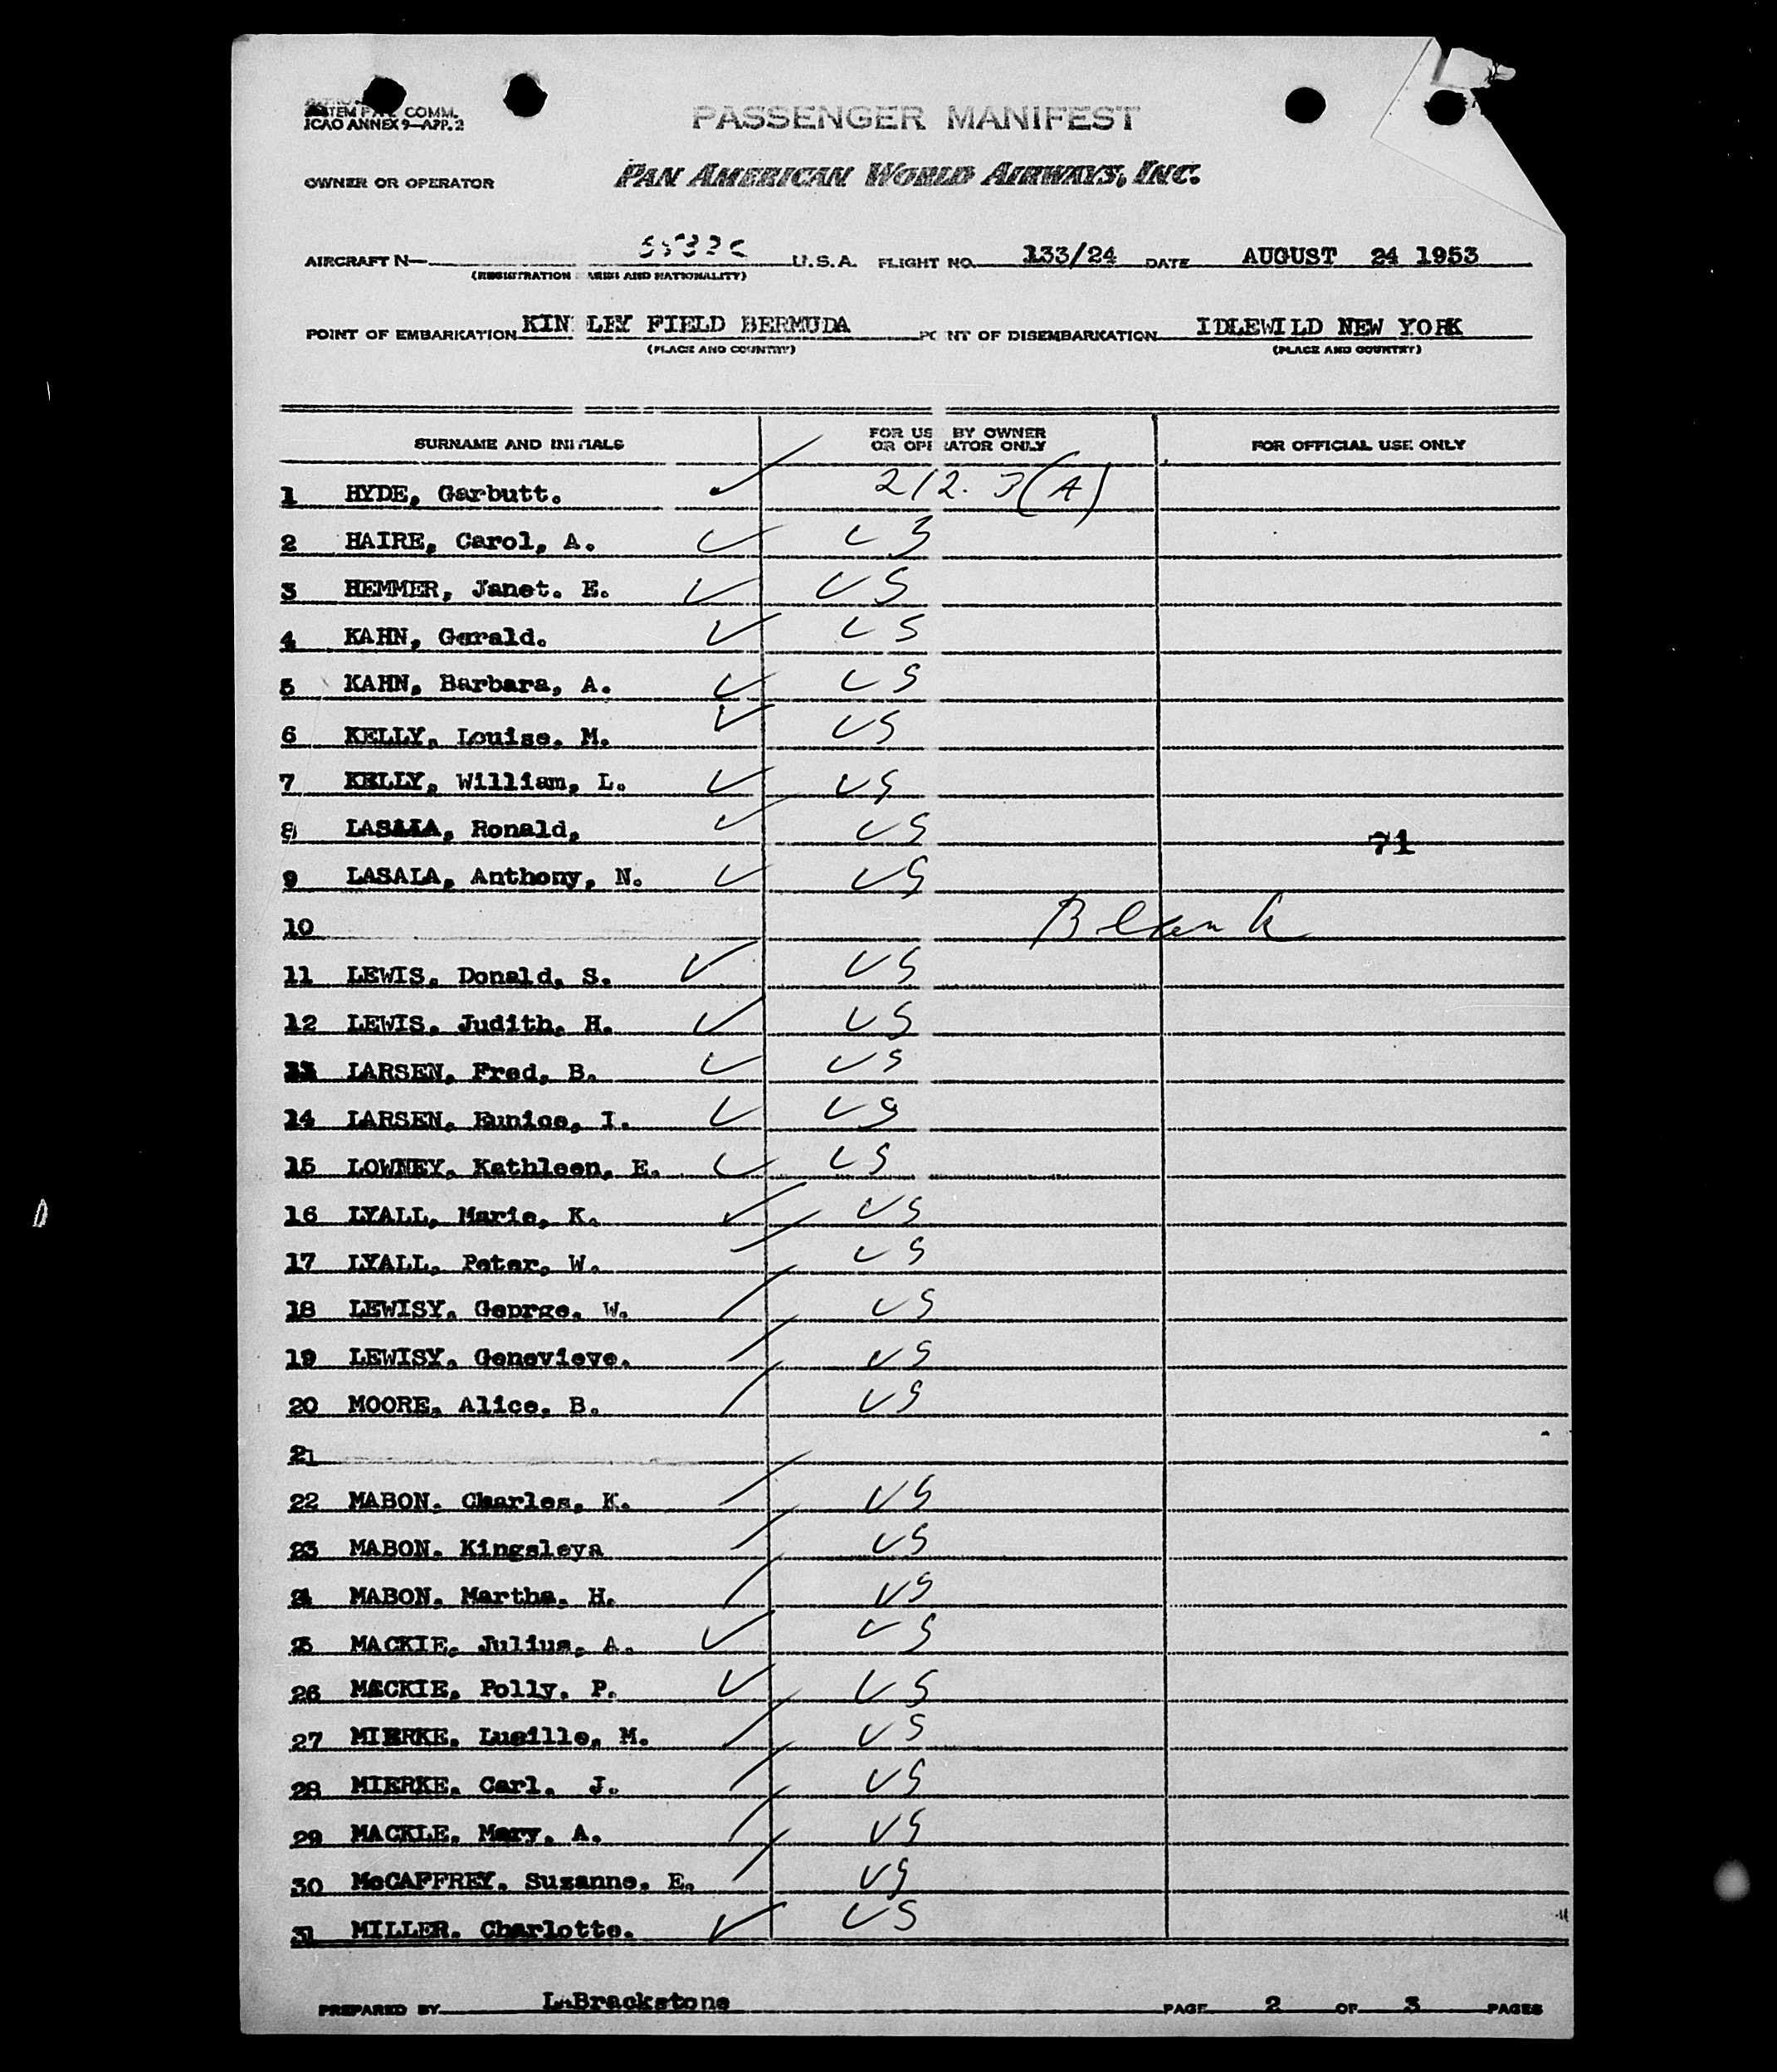 STEM COMM.
ICAO ANNEX 9—APP. 2
PASSENGER MANIFEST
OWNER OR OPERATOR PAN AMERICAN WORLD AIRWAYS, INC.
AIRCRAFT N— U.S.A. FLIGHT NO. 133/24 DATE AUGUST 24 1953
(REGISTRATION ARKS AND NATIONALITY)
POINT OF EMBARKATION KIN LEY FIELD BERMUDA PO NT OF DISEMBARKATION IDLEWILD NEW YORK
(PLACE AND COUNTRY) (PLACE AND COUNTRY)
SURNAME AND INITIALS FOR US BY OWNER OR OPE RATOR ONLY FOR OFFICIAL USE ONLY
1 HYDE, Garbutt. ✓ 212.3(A)
2 HAIRE, Carol, A. ✓ US
3 HEMMER, Janet. E. ✓ US
4 KAHN, Gerald. ✓ US
5 KAHN, Barbara, A. ✓ US
6 KELLY, Louise. M. ✓ US
7 KELLY, William, L. ✓ US
8 LASALA, Ronald, ✓ US 71
9 LASALA, Anthony, N. ✓ US
10 Blank
11 LEWIS. Donald. S. ✓ US
12 LEWIS. Judith. H. ✓ US
13 LARSEN, Fred, B. ✓ US
14 LARSEN, Eunice, I. ✓ US
15 LOWNEY, Kathleen, E. ✓ US
16 LYALL, Marie, K. ✓ US
17 LYALL, Peter, W. ✓ US
18 LEWISY, Geprge. W. / US
19 LEWISY. Genevieve. / US
20 MOORE, Alice. B. / US
21
22 MABON. Charles, K. / US
23 MABON. Kingsleya / US
24 MABON, Martha, H. / US
25 MACKIE, Julius, A. ✓ US
26 MACKIE, Polly, P. ✓ US
27 MIERKE, Lucille, M. / US
28 MIERKE. Carl. J. / US
29 MACKLE. Mary. A. / US
30 McCAFFREY. Suzanne. E. / US
31 MILLER. Charlotte. ✓ US
PREPARED BY L.Brackstone PAGE 2 OF 3 PAGES